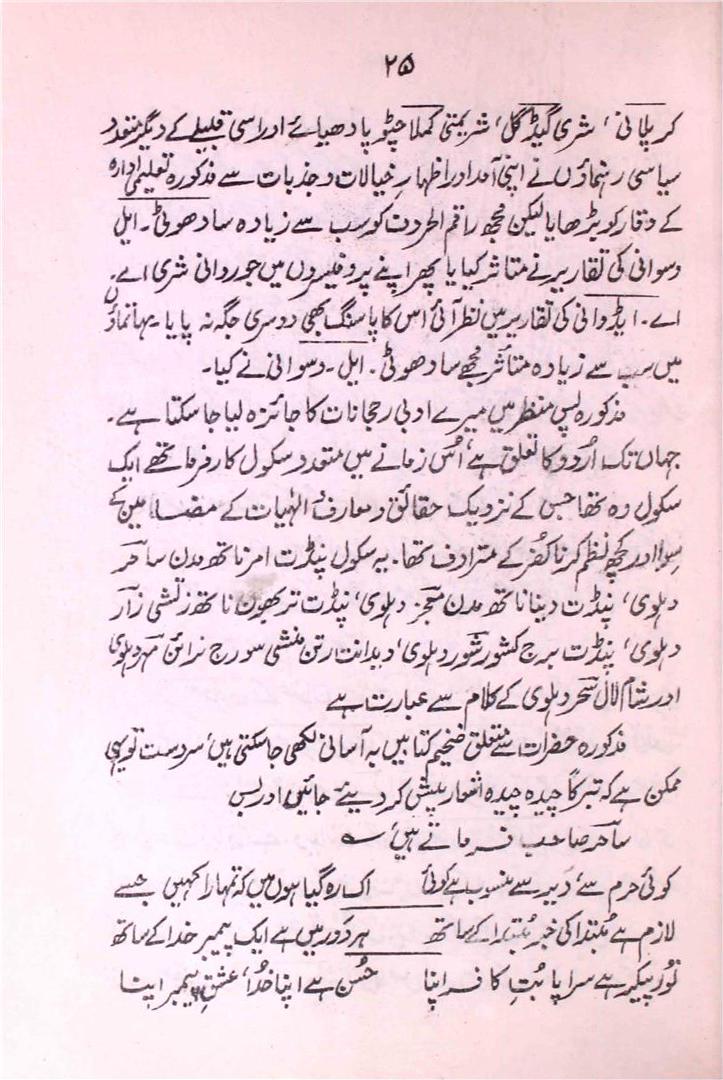 ۲۵
کرپلانی ، شری گیڈگل، شریمتی کملا چٹوپادھیائے اور اسی قبیلے کے دیگر متعدد
سیاسی رہنماؤں نے اپنی آمد اور اظہارِ خیالات و جذبات سے مذکورہ تعلیمی ادارہ
کے وقار کو بڑھایا لیکن مجھ راقم الحروف کو سب سے زیادہ سادھو ٹی۔ ایل
وسوانی کی تقاریر نے متاثر کیا یا پھر اپنے پروفیسروں میں جو روانی شری اے۔
اے۔ ایڈوانی کی تقاریر میں نظر آئی اس کا پاسنگ بھی دوسری جگہ نہ پایا۔ مہاتماؤں
میں سب سے زیادہ متاثر مجھے سادھو ٹی۔ ایل۔ وسوانی نے کیا۔
مذکورہ پس منظر میں میرے ادبی رحجانات کا جائزہ لیا جا سکتا ہے۔
جہاں تک اُردو کا تعلق ہے، اُس زمانے میں متعدد سکول کارفرما تھے ایک
سکول وہ تھا جس کے نزدیک حقائق و معارف و الٰہیات کے مضامین کے
سوا اور کچھ نظم کرنا کفر کے مترادف تھا۔ یہ سکول پنڈت امرناتھ مدن ساحر
دہلوی، پنڈت دیناناتھ مدن معجز دہلوی، پنڈت تربھون ناتھ زتشی زار
دہلوی، پنڈت برج کشور شور دہلوی، ویدانت رتن منشی سورج نرائن مہر دہلوی
اور شام لال سحر دہلوی کے کلام سے عبارت ہے
مذکورہ حضرات سے متعلق ضخیم کتابیں بہ آسانی لکھی جا سکتی ہیں، سرِدست تو یہی
ممکن ہے کہ تبرکاً چیدہ چیدہ اشعار پیش کر دیئے جائیں اور بس
ساحر صاحب فرماتے ہیں، ؎
کوئی حرم سے، دَیر سے منسوب ہے کوئی اک رہ گیا ہوں میں کہ تمہارا کہیں جسے
لازم ہے مُبتدا کی خبر مُبتدا کے ساتھ ہر دَور میں ہے ایک پیمبر خدا کے ساتھ
نُور پیکر ہے سراپا بُتِ کافر اپنا حُسن ہے اپنا خُدا، عشق پیمبر اپنا